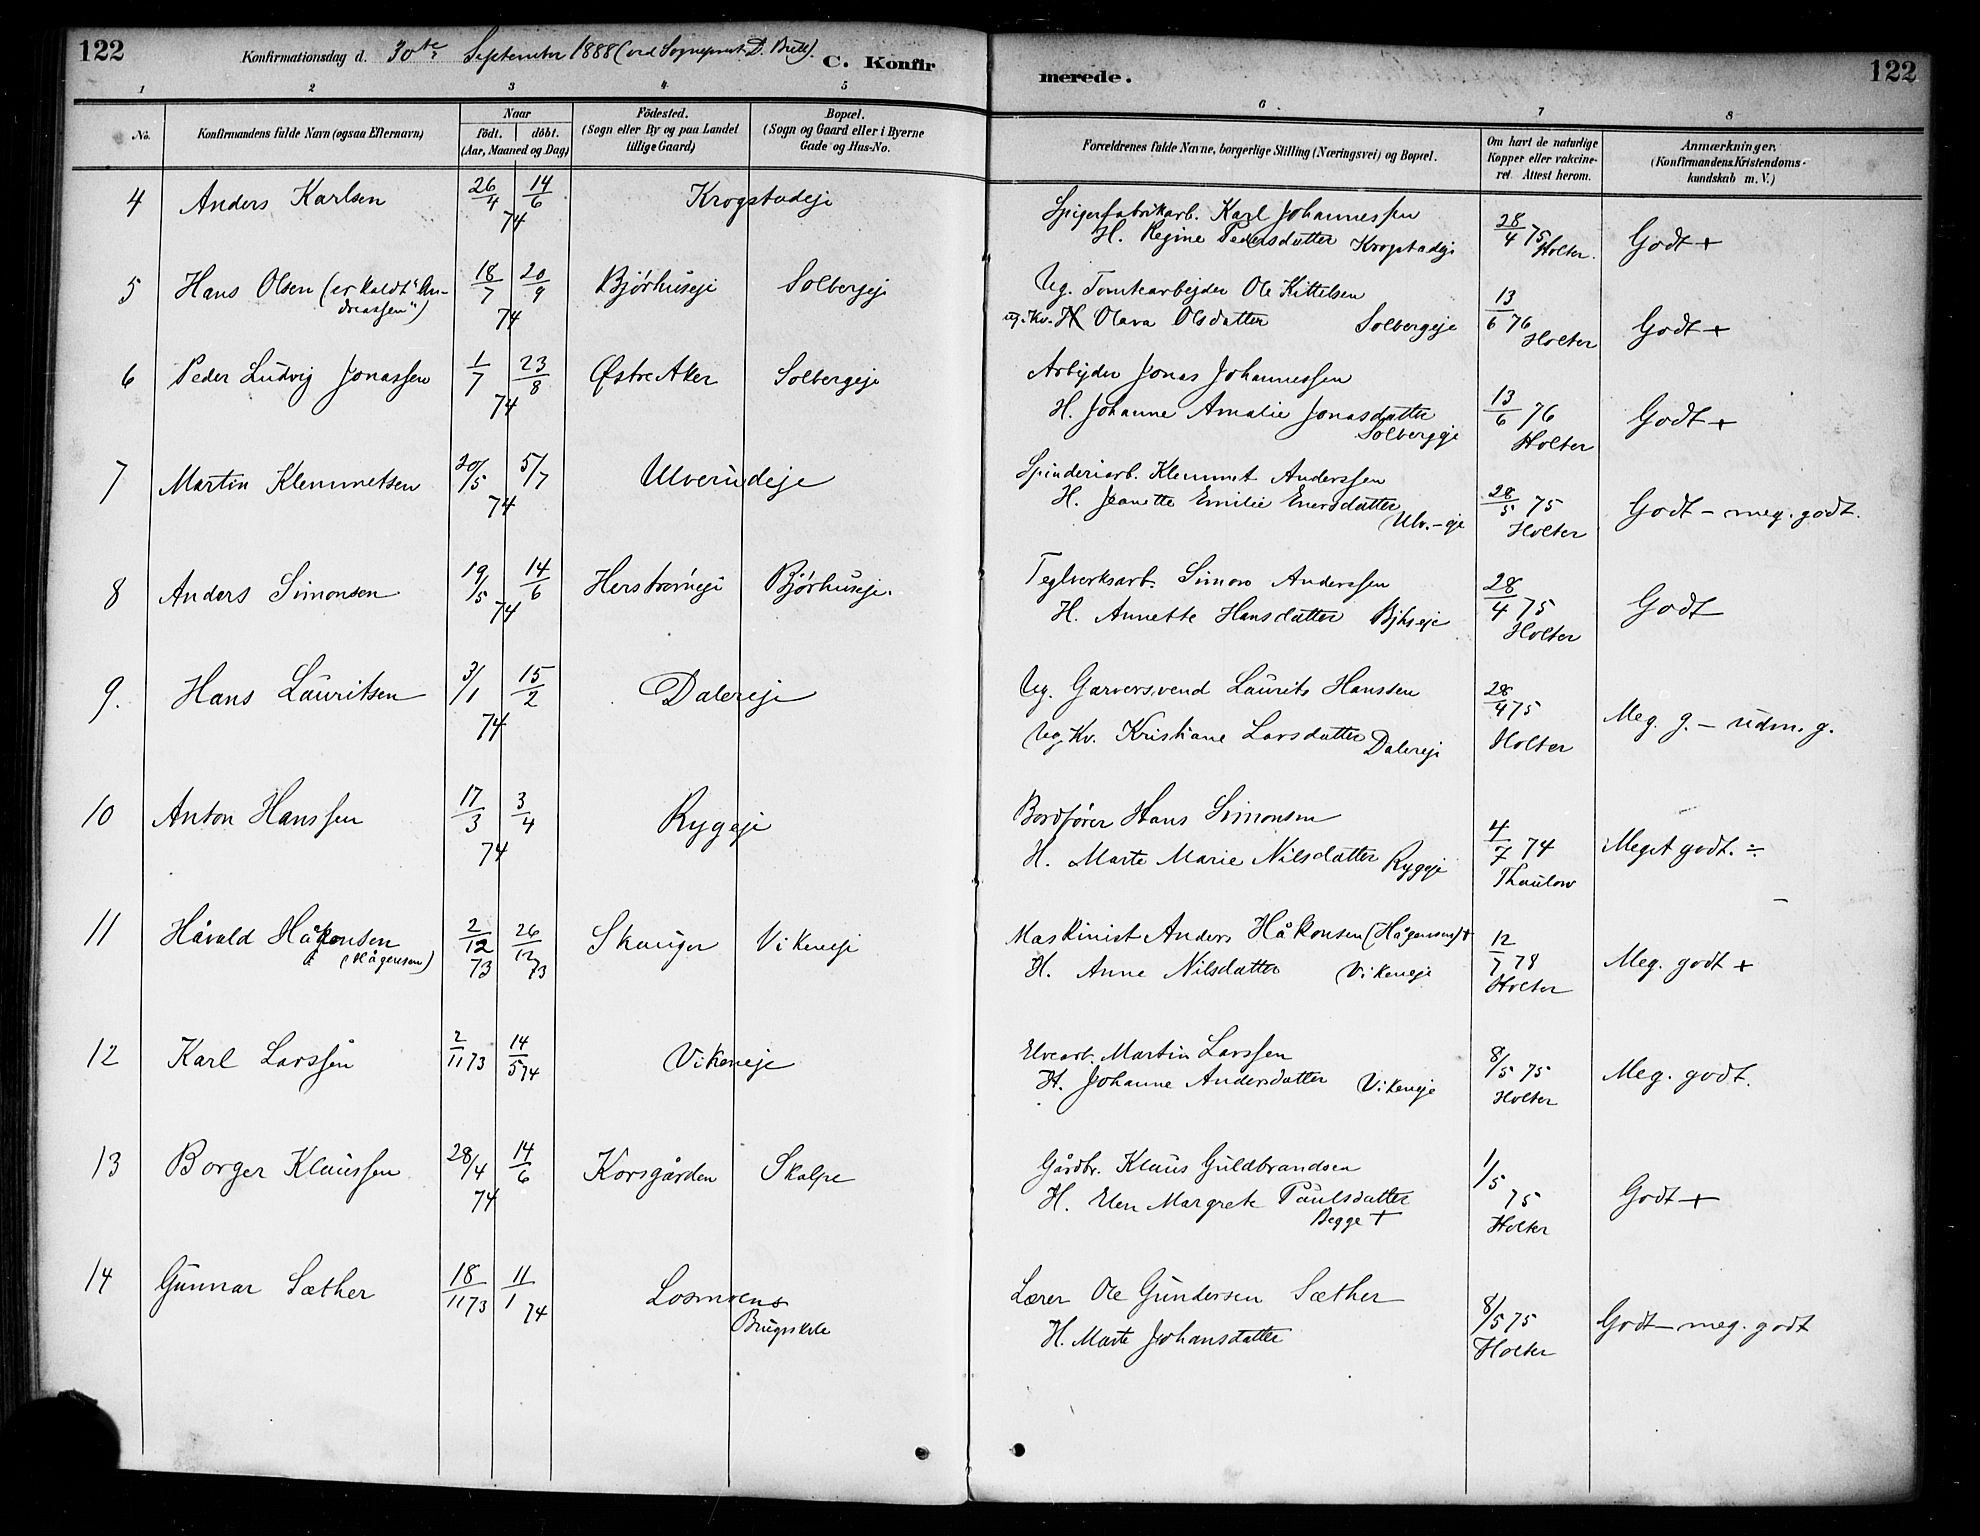 122
Konfirmationsdag d. 30te September 1888 (ved Sogneprest D. Bull).
C. Konfir
merede.
122
1 2 3 4 5
6 7 8
No.
Konfirmandens fulde Navn (ogsaa Efternavn)
Naar
født. døbt.
(Aar, Maaned og Dag)
Fødested.
(Sogn eller By og paa Landet
tillige Gaard)
Bopæl.
(Sogn og Gaard eller i Byerne
Gade og Hus-No.
Forældrenes fulde Navne, borgerlige Stilling (Næringsvei) og Bopæl.
Om havt de naturlige
Kopper eller vakcine-
ret. Attest herom.
Anmærkninger.
(Konfirmandens Kristendoms-
kundskab m. V.)
4 Anders Karlsen 26/4 14/6 74 Krogstadeje
Spigerfabrikarb. Karl Johannessen
H. Regine Pedersdatter Krogstadeje
28/4 75 Holter. Godt +
5 Hans Olsen (er kaldt "An-
dreassen") 18/7 20/9 74 Bjørhuseje Solbergeje
Ug. Tomtearbejder Ole Kittelsen
ug. Kv. H Olava Olsdatter Solbergeje
13/6 76 Holter Godt +
6 Peder Ludvig Jonassen 1/7 23/8 74 Østre Aker Solbergeje
Arbejder Jonas Johannessen
H. Johanne Amalie Jonasdatter
Solbergeje
13/6 76 Holter Godt +
7 Martin Klemmetsen 20/5 5/7 74 Ulverudeje
Spinderiarb. Klemmet Anderssen
H. Jeanette Emilie Enersdatter
Ulv.-eje
28/5 75 Holter Godt - meg. godt.
8 Anders Simonsen 19/5 14/6 74 Herstrømeje Bjørhuseje.
Teglverksarb. Simon Anderssen
H. Annette Hansdatter Bjhseje
28/4 75 Holter Godt
9. Hans Lauritsen 3/1 15/2 74 Dalereje
Ug. Garversvend Laurits Hanssen
Ug. Kv. Kristiane Larsdatter Dalereje
28/4 75 Holter Meg. g. - udm. g.
10 Anton Hanssen 17/3 3/4 74 Rygeje
Bordfører Hans Simonsen
H. Marte Marie Nilsdatter Rygeje
4/7 74 Thaulow Meget godt. ÷
11 Håvald Håkonsen
(Hågensen) 2/12 73 26/12 73 Skauger Vikeneje
Maskinist Anders Håkonsen (Hågensen) +
H. Anne Nilsdatter Vikeneje
12/7 78 Holter Meg. godt +
12 Karl Larssen 2/11 73 14/5 74 Vikeneje
Elvearb. Martin Larssen
H. Johanne Andersdatter Vikeneje
8/5 75 Holter Meg. godt.
13 Borger Klaussen 28/4 14/6 74 Korsgården Skalpe
Gårdbr. Klaus Guldbrandsen
H. Elen Margrete Paulsdatter
Begge +
1/5 75 Holter Godt +
14 Gunnar Sæther 18/11 73 11/1 74 Losmoens
Brugsskole
Lærer Ole Gundersen Sæther
H. Marte Johansdatter
8/5 75 Holter Godt - meg. godt